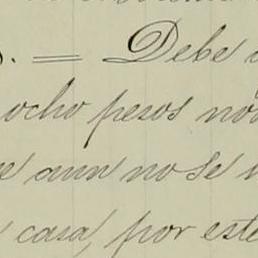 Debe
ocho pesos
aun no se
casa, por este